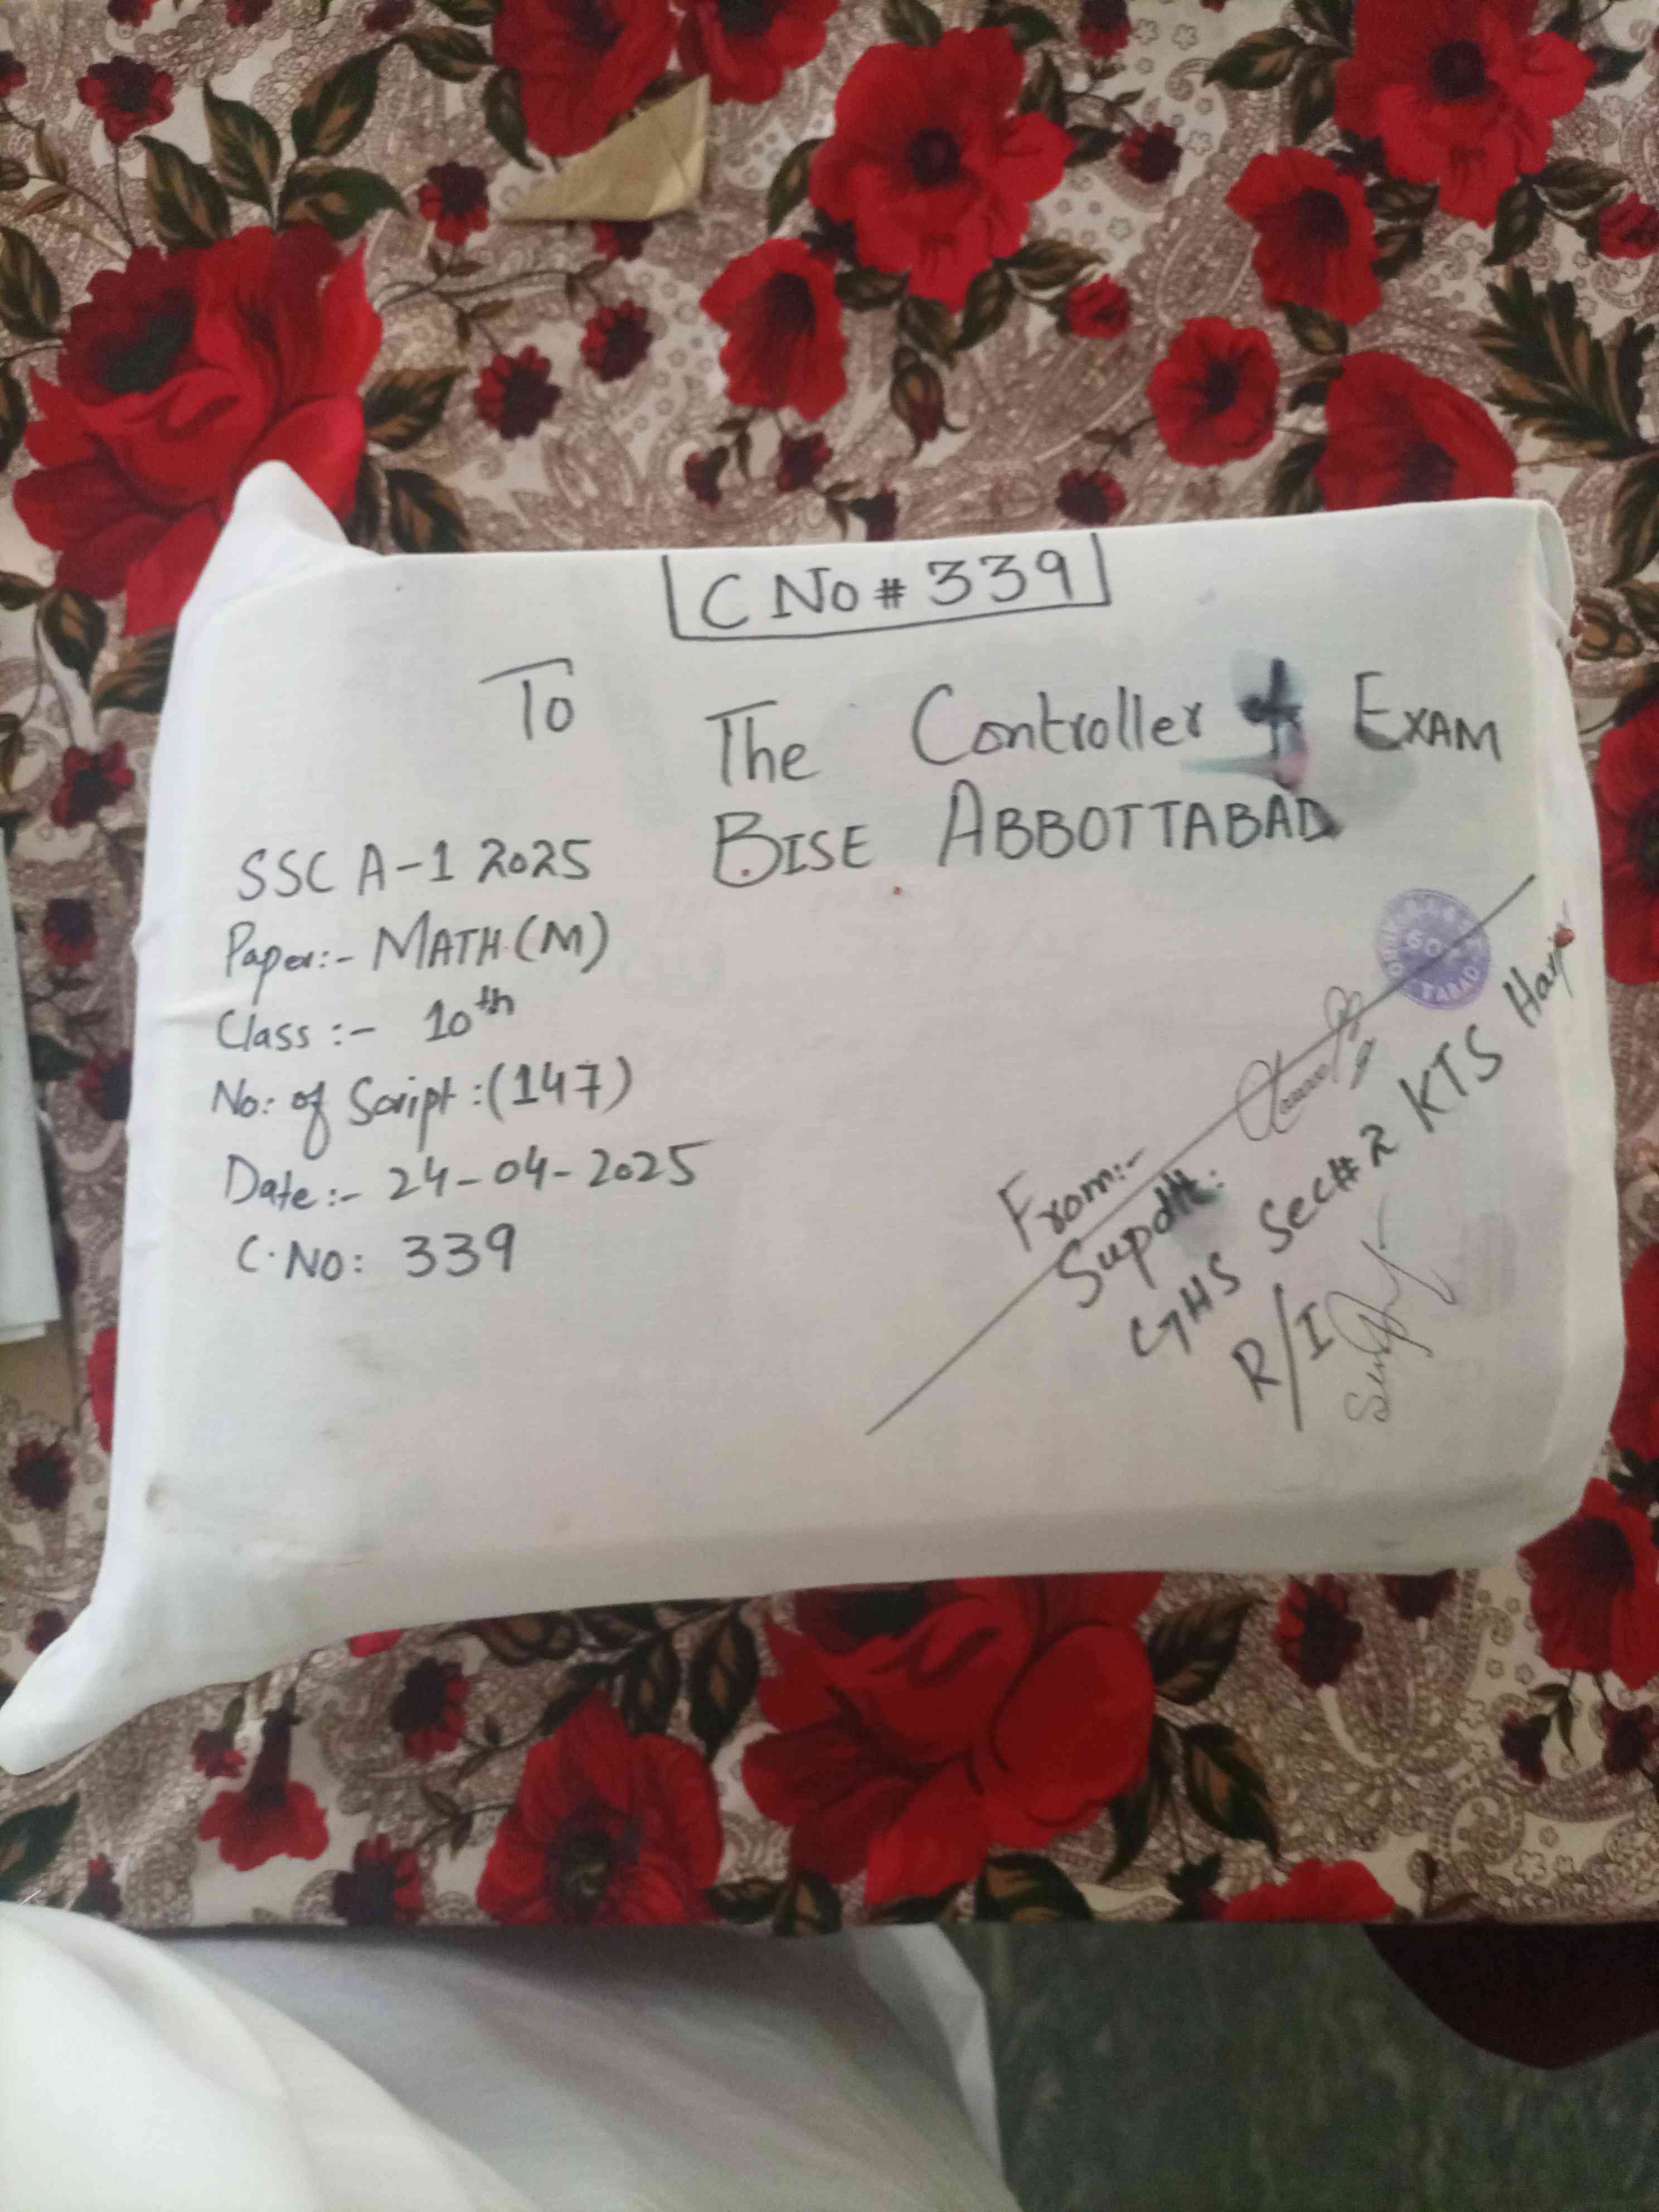 C No # 339
To
The Controller of EXAM
BISE ABBOTTABAD
SSC A-1 2025
Paper:- MATH (M)
Class :- 10th
No: of Script :(147)
Date:- 24-04-2025
C. No: 339
From:-
Supdtt:
GHS Sec# 2 KTS
R/I
TABAD